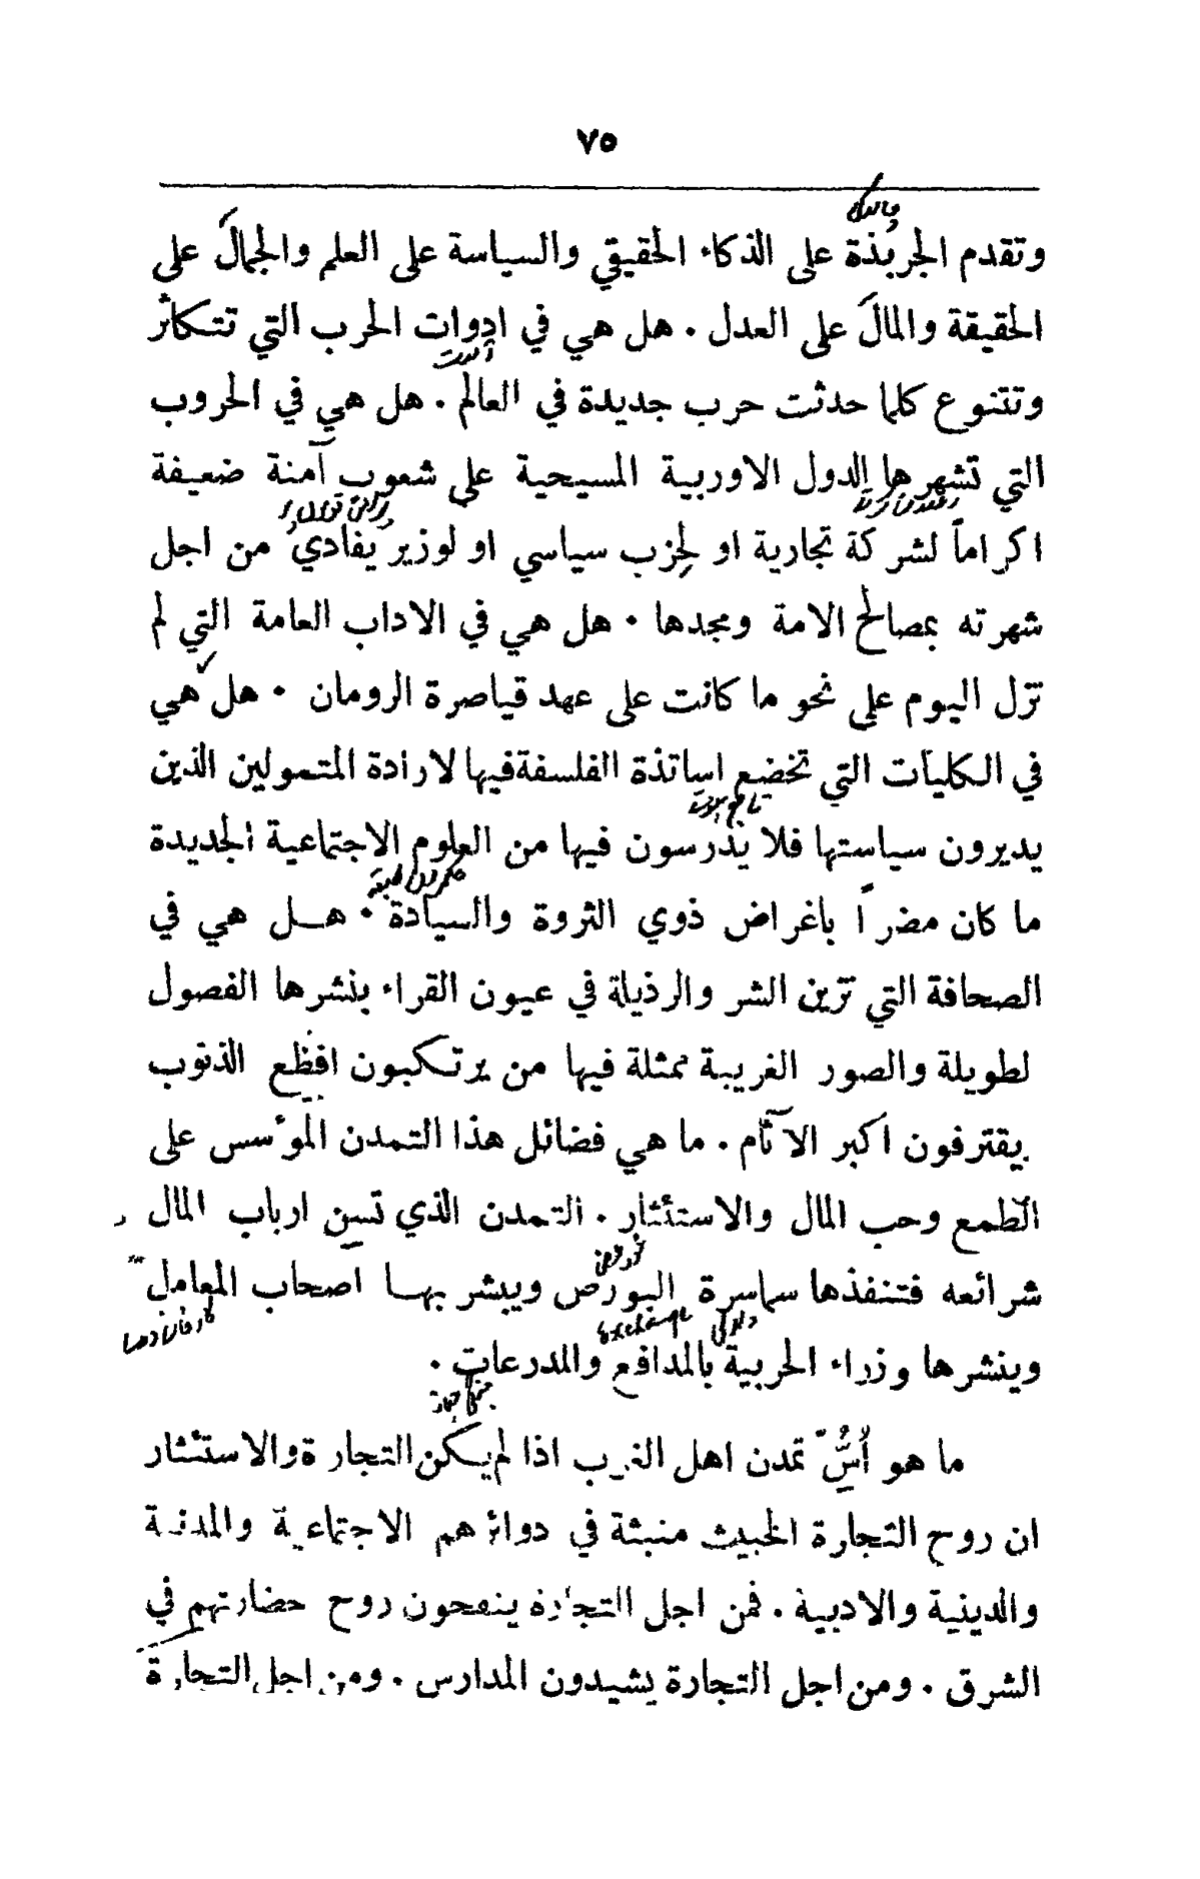 ٧٥
وتقدم الجربُذة على الذكاء الحقيقي والسياسة على العلم والجمالَ على
الحقيقة والمالَ على العدل . هل هي في ادوات الحرب التي تتكاثر
وتتنوع كلما حدثت حرب جديدة في العالم . هل هي في الحروب
التي تشهرها الدول الاوربية المسيحية على شعوب آمنة ضعيفة
اكراماً لشركة تجارية او لحِزب سياسي او لوزير يفادي من اجل
شهرته بمصالح الامة ومجدها . هل هي في الاداب العامة التي لم
تزل اليوم على نحو ما كانت على عهد قياصرة الرومان . هل هي
في الكليات التي تخضع اساتذة الفلسفة فيها لارادة المتمولين الذين
يديرون سياستها فلا يدرسون فيها من العلوم الاجتماعية الجديدة
ما كان مضراً باغراض ذوي الثروة والسيادة . هـل هي في
الصحافة التي تزين الشر والرذيلة في عيون القراء ينشرها الفصول
لطويلة والصور الغريبة ممثلة فيها من يرتكبون افظع الذنوب
يقترفون اكبر الآثام . ما هي فضائل هذا التمدن المؤسس على
الطمع وحب المال والاستئثار . التمدن الذي تسن ارباب المال
شرائعه فتنفذها سماسرة البورص ويبشر بهـا اصحاب المعامل
وينشرها وزراء الحربية بالمدافع والمدرعات .
exchange
ما هو أُسُّ تمدن اهل الغرب اذا لم يكن التجارة والاستئثار
ان روح التجارة الخبيث منبثة في دوائرهم الاجتماعية والمدنية
والدينية والادبية . فمن اجل التجارة ينفحون روح حضارتهم في
الشرق . ومن اجل التجارة يشيدون المدارس . ومن اجل التجارة